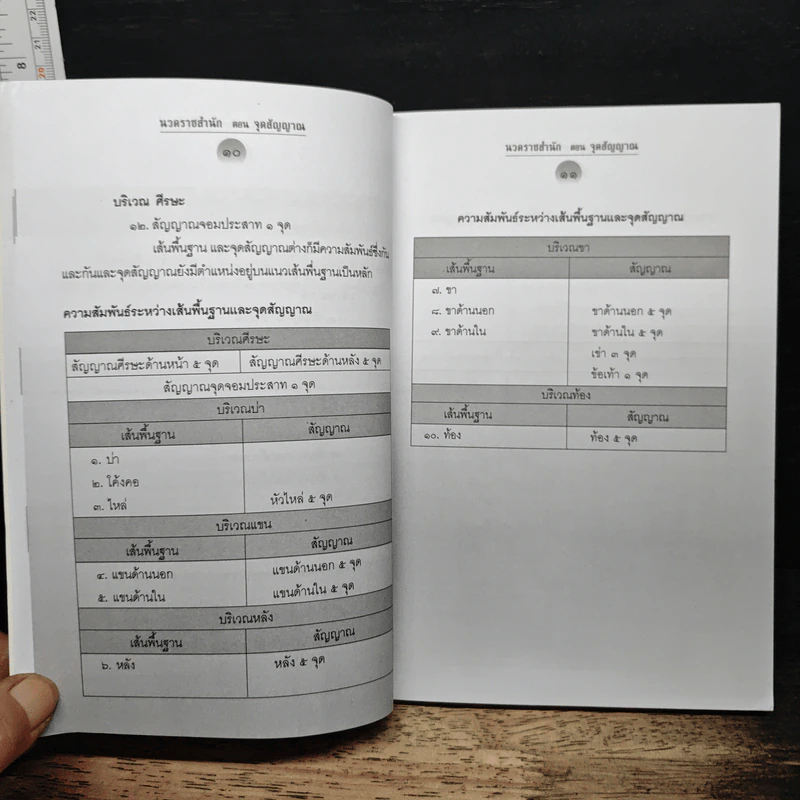 นวดราชสำนัก ตอน จุดสัญญาณ
๑๐
บริเวณ ศีรษะ
๑๒. สัญญาณจอมประสาท ๑ จุด
เส้นพื้นฐาน และจุดสัญญาณต่างก็มีความสัมพันธ์ซึ่งกัน
และกันและจุดสัญญาณยังมีตำแหน่งอยู่บนแนวเส้นพื้นฐานเป็นหลัก
ความสัมพันธ์ระหว่างเส้นพื้นฐานและจุดสัญญาณ
บริเวณศีรษะ
สัญญาณศีรษะด้านหน้า ๕ จุด สัญญาณศีรษะด้านหลัง ๕ จุด
สัญญาณจุดจอมประสาท ๑ จุด
บริเวณบ่า
เส้นพื้นฐาน สัญญาณ
๑. บ่า
๒. โค้งคอ
๓. ไหล่ หัวไหล่ ๕ จุด
บริเวณแขน
เส้นพื้นฐาน สัญญาณ
๔. แขนด้านนอก แขนด้านนอก ๕ จุด
๕. แขนด้านใน แขนด้านใน ๕ จุด
บริเวณหลัง
เส้นพื้นฐาน สัญญาณ
๖. หลัง หลัง ๕ จุด
นวดราชสำนัก ตอน จุดสัญญาณ
๑๑
ความสัมพันธ์ระหว่างเส้นพื้นฐานและจุดสัญญาณ
บริเวณขา
เส้นพื้นฐาน สัญญาณ
๗. ขา
๘. ขาด้านนอก ขาด้านนอก ๕ จุด
๙. ขาด้านใน ขาด้านใน ๕ จุด
เข่า ๓ จุด
ข้อเท้า ๑ จุด
บริเวณท้อง
เส้นพื้นฐาน สัญญาณ
๑๐. ท้อง ท้อง ๕ จุด
8
22
21
20